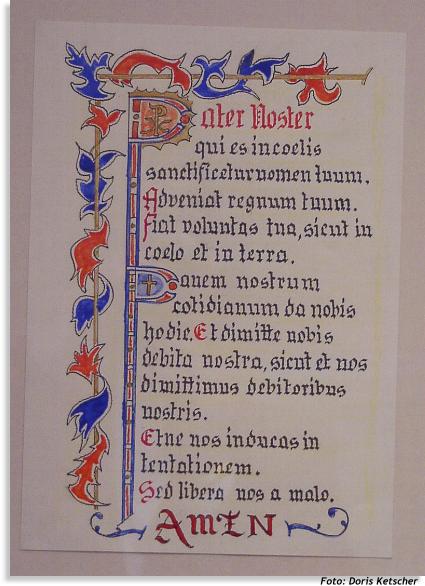 Pater Noster
qui es in coelis
sanctificetur nomen tuum.
Adveniat regnum tuum.
Fiat voluntas tua, sicut in
coelo et in terra.
Panem nostrum
cotidianum da nobis
hodie. Et dimitte nobis
debita nostra, sicut et nos
dimittimus debitoribus
nostris.
Et ne nos inducas in
tentationem.
Sed libera nos a malo.
AMEN
Foto: Doris Ketscher